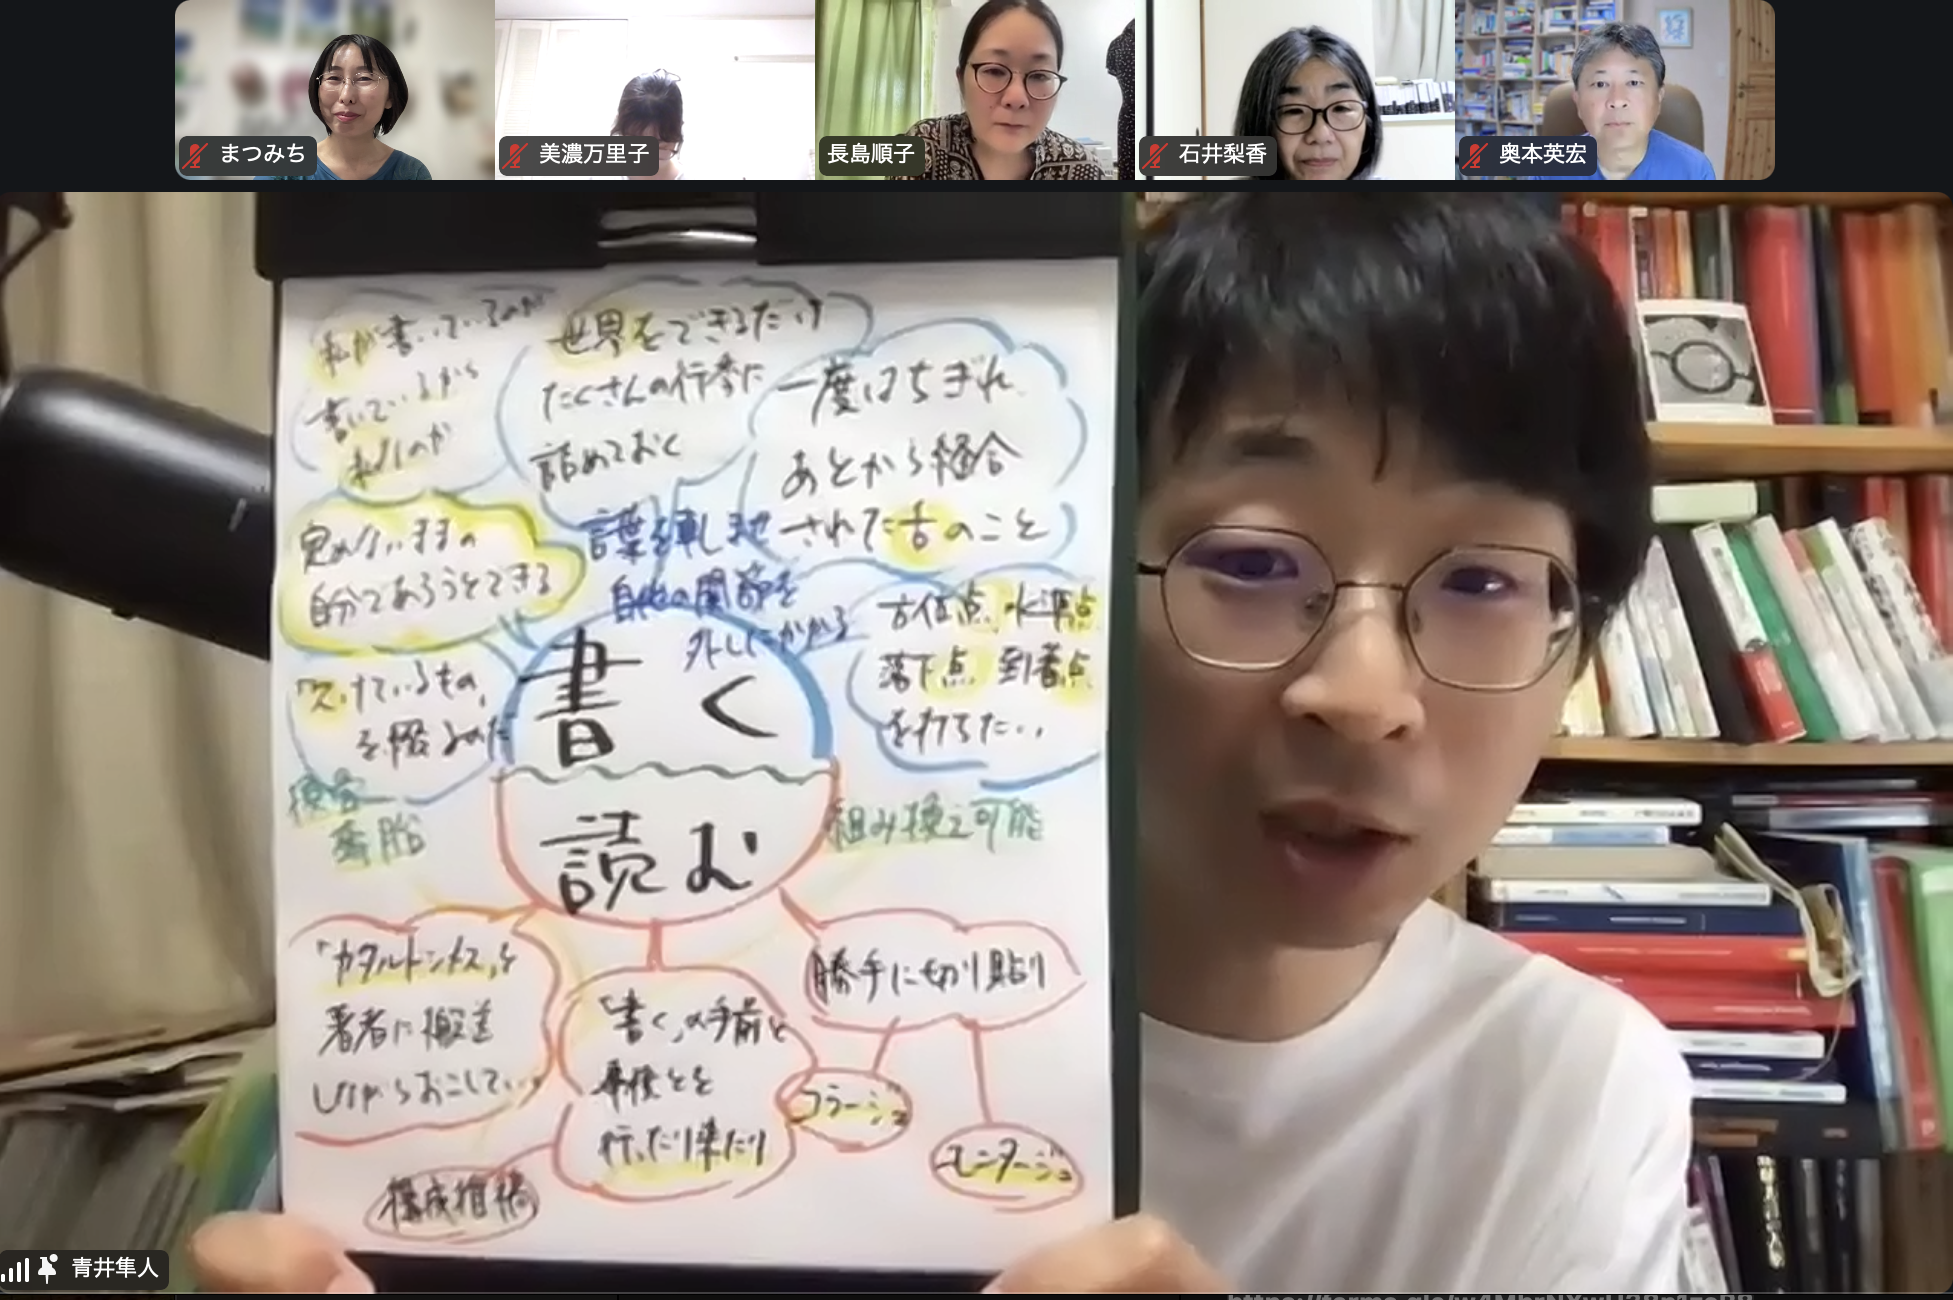 まつみち
美濃万里子
長島順子
石井梨香
奥本英宏
私が書いているのか
書いているから
私なのか
世界をできるだけ
たくさんの行李に
詰めておく
一度はちぎれ、
あとから縫合
された舌のこと
定めないままの
自分であろうとできる
言葉を車しませ
自他の関節を
外しにかかる
方位点、水準点
落下点、到着点
を打ちたい、
「欠けているもの」
を綴るめた
書く
読む
換骨
奪胎
組み換え可能
「カタルトシメス」を
著者に搬送
しながらおこしていく
「書く」の手前と
事後とを
行ったり来たり
勝手に切り貼り
コラージュ
モンタージュ
構成推稿
青井隼人